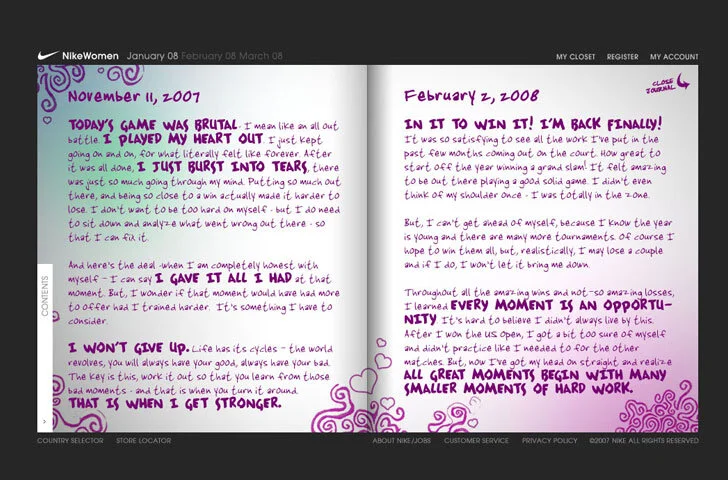 NikeWomen January 08 February 08 March 08
MY CLOSET REGISTER MY ACCOUNT
November 11, 2007
TODAY'S GAME WAS BRUTAL. I mean like an all out
battle. I PLAYED MY HEART OUT. I just kept
going on and on, for what literally felt like forever. After
it was all done, I JUST BURST INTO TEARS, there
was just so much going through my mind. Putting so much out
there, and being so close to a win actually made it harder to
lose. I don't want to be too hard on myself - but I do need
to sit down and analyze what went wrong out there - so
that I can fix it.
And here's the deal - when I am completely honest with
myself - I can say I GAVE IT ALL I HAD at that
moment. But, I wonder if that moment would have had more
to offer had I trained harder. It's something I have to
consider.
I WON'T GIVE UP. Life has its cycles - the world
revolves, you will always have your good, always have your bad.
The key is this, work it out so that you learn from those
bad moments - and that is when you turn it around.
THAT IS WHEN I GET STRONGER.
CONTENTS
February 2, 2008
CLOSE
JOURNAL
IN IT TO WIN IT! I'M BACK FINALLY!
It was so satisfying to see all the work I've put in the
past few months coming out on the court. How great to
start off the year winning a grand slam! It felt amazing
to be out there playing a good solid game. I didn't even
think of my shoulder once - I was totally in the zone.
But, I can't get ahead of myself, because I know the year
is young and there are many more tournaments. Of course I
hope to win them all, but, realistically, I may lose a couple
and if I do, I won't let it bring me down.
Throughout all the amazing wins and not-so amazing losses,
I learned EVERY MOMENT IS AN OPPORTU-
NITY. It's hard to believe I didn't always live by this.
After I won the US Open, I got a bit too sure of myself
and didn't practice like I needed to for the other
matches. But, now I've got my head on straight and realize
ALL GREAT MOMENTS BEGIN WITH MANY
SMALLER MOMENTS OF HARD WORK.
COUNTRY SELECTOR STORE LOCATOR
ABOUT NIKE/JOBS CUSTOMER SERVICE PRIVACY POLICY ©2007 NIKE ALL RIGHTS RESERVED